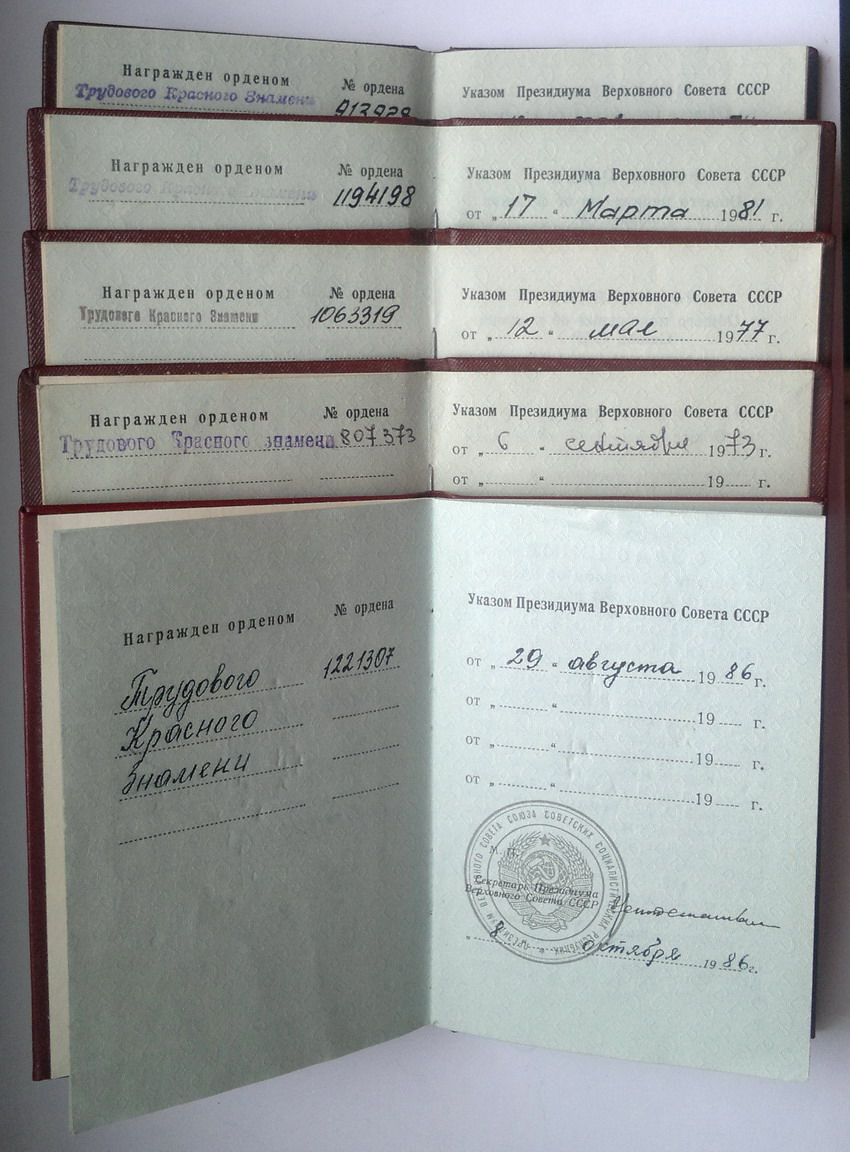 Награжден орденом № ордена
Трудового Красного Знамени 913929
Указом Президиума Верховного Совета СССР
Награжден орденом № ордена
Трудового Красного Знамени 1194198
Указом Президиума Верховного Совета СССР
от „ 17 “ Марта 1981 г.
Награжден орденом № ордена
Трудового Красного Знамени 1063319
Указом Президиума Верховного Совета СССР
от „ 12 “ мая 1977 г.
Награжден орденом № ордена
Трудового Красного знамени 807373
Указом Президиума Верховного Совета СССР
от „ 6 “ сентября 1973 г.
от „ “ 19 г.
Награжден орденом № ордена
Трудового 1221307
Красного
Знамени
Указом Президиума Верховного Совета СССР
от „ 29 “ августа 1986 г.
от „ “ 19 г.
от „ “ 19 г.
от „ “ 19 г.
ПРЕЗИДИУМ ВЕРХОВНОГО СОВЕТА СОЮЗА СОВЕТСКИХ СОЦИАЛИСТИЧЕСКИХ РЕСПУБЛИК
М. П.
Секретарь Президиума
Верховного Совета СССР
„ 8 “ октября 1986 г.